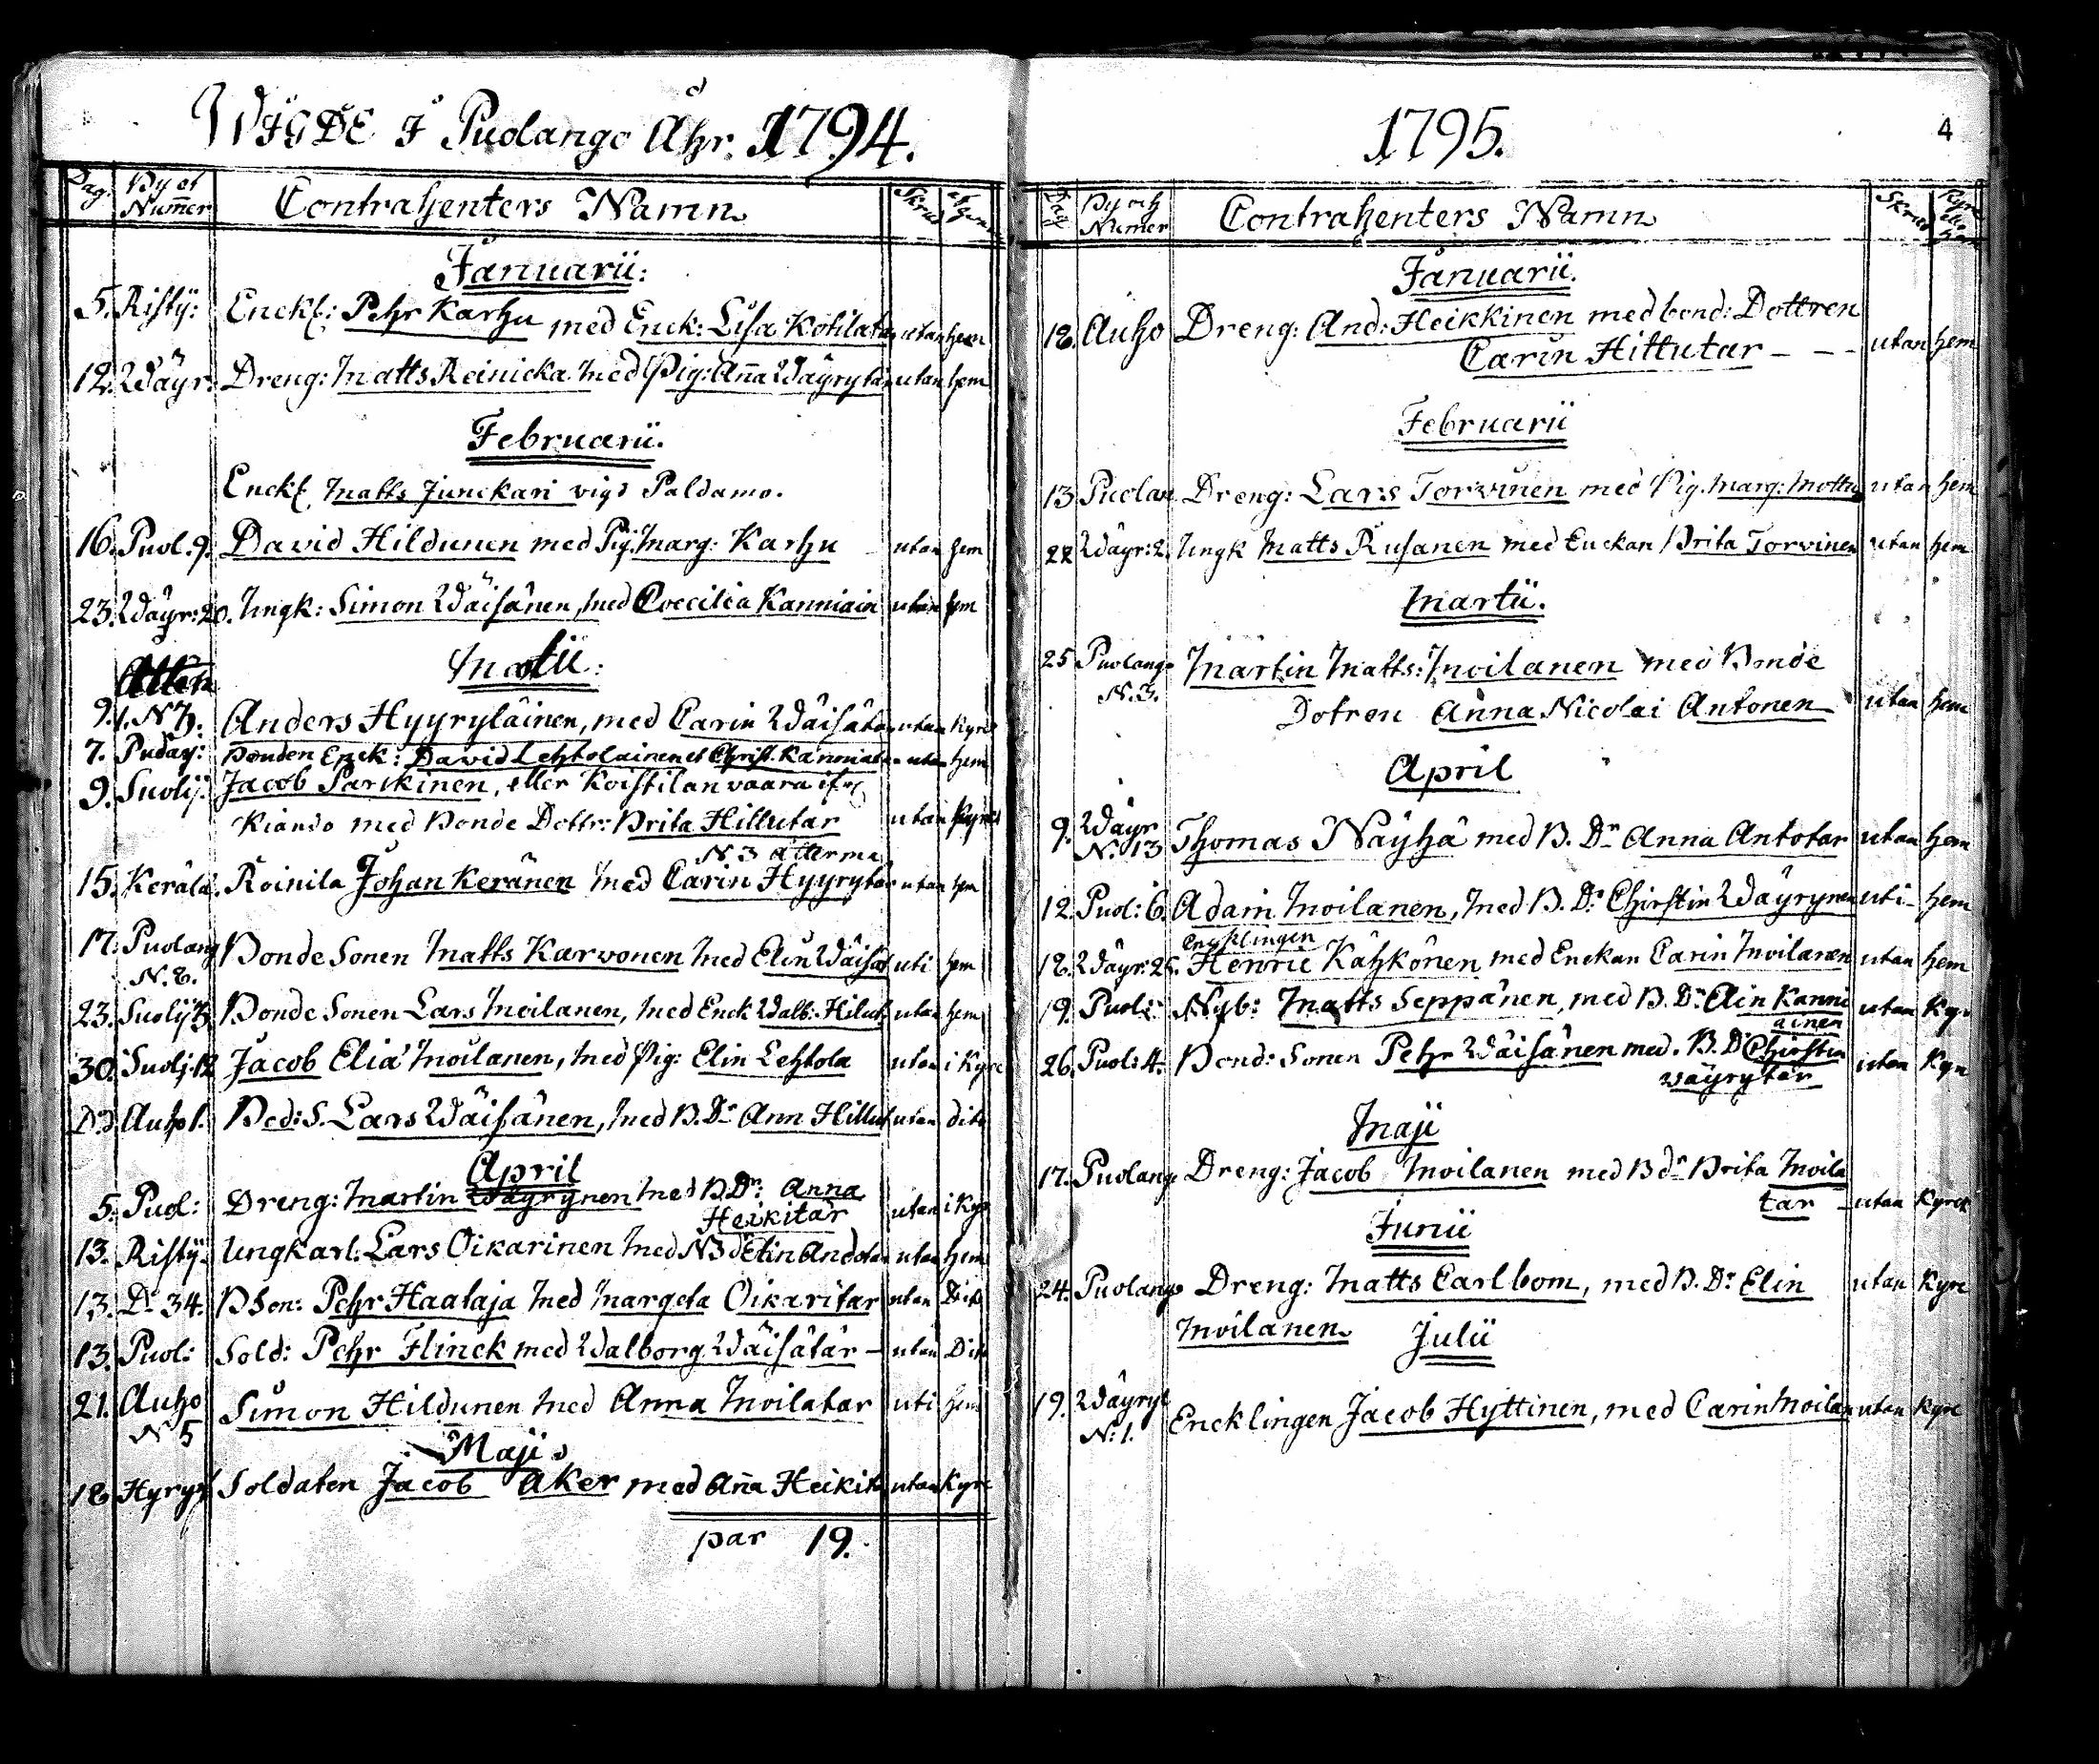 WIGDE I Puolango Åhr. 1794.
Dag. By et Numer Contrahenters Namn Skrud et hem
Januarii:
5. Risty: Enckl: Pehr Karhu med Enck: Lisa Kotilatar utan hem
12. Wäyr: Dreng: Matts Reinicka med Pig: Anna Wäyrytär utan hem
Februarii.
Enckl. Matts Junckari vigd Paldamo.
16. Puol. 9. David Hildunen med Pig. Marg: Karhu utan hem
23. Wäyr: 20. Ungk: Simon Wäisänen, med Coecilia Kanniain utan hem
Martii:
9. 1. N 7. Anders Hyyryläinen, med Carin Wäisätär utan Kyrc
7. Puday: Bonden Enck: David Lehtolainen et Christ. Kanniatar utan hem
9. Suolij: Jacob Parckinen, eller Koistilanvaara ifrå
Kiando med Bonde Dottr: Brita Hillutar utan Kyrc
N. 3 Atterma
15. Kerälä. Roinila Johan Keränen med Carin Hyyrytär utan hem
17. Puolang N. 8. Bonde Sonen Matts Karvonen med Elin Wäisät uti hem
23. Suolij 3 Bonde Sonen Lars Moilanen, med Enck Walb: Hilut utan hem
30. Suolj: 12 Jacob Elia Moilanen, med Pig: Elin Lehtola utan i Kyrc
Do Auho 1. Bod: S. Lars Wäisänen, med B. Dr Ann Hillut utan dito
April
5. Puol: Dreng: Martin Wäyrynen med B. Dr: Anna
Heikitar utan i Kyr
13. Risty. Ungkarl: Lars Oikarinen med B d Elin Andotar utan hem
13. Do 34. B Son: Pehr Haataja med Margeta Oikaritar utan Dito
13. Puol: Sold: Pehr Flinck med Walborg Wäisätär – utan Dito
21. Auho N 5 Simon Hildunen med Anna Moilatar uti hem
Maji
18 Hyryt Soldaten Jacob Aker med Anna Heikit utan Kyrc
par 19.
1795.
4
Dag By och Numer Contrahenters Namn Skrud Kyrc elr hem
Januarii.
18. Auho Dreng: And: Heikkinen med bond: Dottren
Carin Hittutar – – – utan hem
Februarii
13 Puolan Dreng: Lars Torvinen med Pig. Marg: Mottu utan hem
22 Wäyr: 2. Ungk Matts Rusanen med Enckan Brita Torvinen utan hem
Martii.
25 Puolango N. 3. Mårtin Matts: Moilanen med Bonde
Dotren Anna Nicolai Antonen utan hem
April
9. Wäyr N. 13 Thomas Näyhä med B. Dr Anna Antotar utan hem
12. Puol: 6. Adam Moilanen, med B. Dr Chirstin Wäyrynen uti – hem
encklingen
18. Wäyr: 25. Henric Kähkönen med Enckan Carin Moilanen utan hem
19. Puol: Nyb: Matts Seppänen, med B. Dr Ain Kanni
ainen utan Kyr
26. Puol: 4. Bond: Sonen Pehr Wäisänen med. B. Dr Chirstin
väyrytär utan Kyrc
Maji
17. Puolango Dreng: Jacob Moilanen med B dr Brita Moila
tar – utan Kyrck
Junii
24. Puolango Dreng: Matts Carlbom, med B. Dr Elin utan Kyrc
Moilanen.
Julii
19. Wäyryl N: 1. Encklingen Jacob Hyttinen, med Carin Moilan utan Kyrc